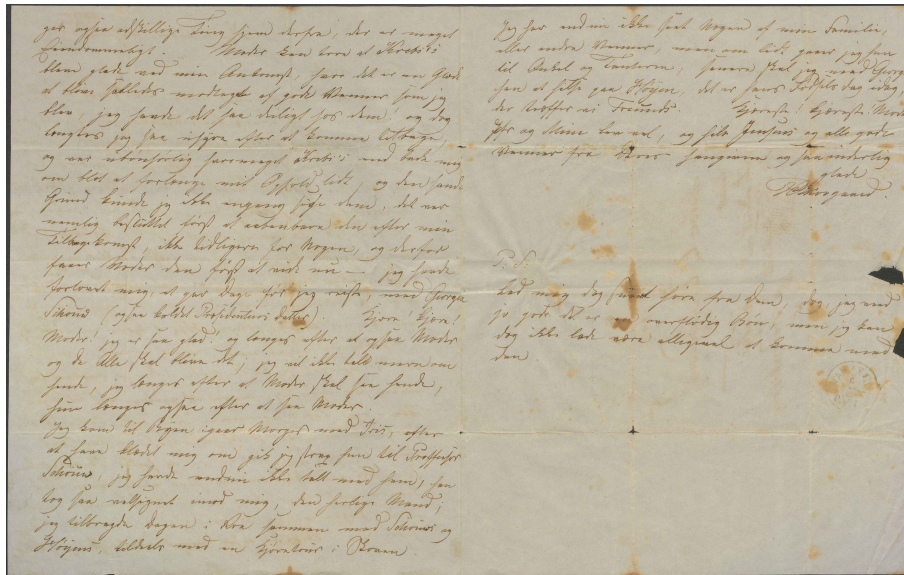 gav ogsaa adskillige Ting hjem derfra, der er meget
eiendommeligt. Moder kan troe at Krebs's
bleve glade ved min Ankomst, havde det er en Glæde
at blive saaledes modtaget af gode Venner som jeg
blev, jeg havde det saa deiligt hos dem! og dog
længtes jeg saa uhyre efter at komme tilbage,
og var ubønhørlig hvormeget Krebs's end bade mig
om blot at forlænge mit Ophold lidt, og den sande
Grund kunde jeg ikke engang sige dem, det var
nemlig besluttet først at aabenbare den efter min
Tilbagekomst, ikke tidligere for Nogen, og derfor
faaer Moder den først at vide nu — jeg havde
forlovet mig, et par Dage før jeg reiste, med Georgia
Schouw (ogsaa kaldet Præsidentens Datter). Kjære! Kjære!
Moder! jeg er saa glad! og længes efter at ogsaa Moder
og de Alle skal blive det, jeg vil ikke tale mere om
hende, jeg længes efter at Moder skal see hende,
hun længes ogsaa efter at see Moder.
Jeg kom til Byen igaar Morges med Iris, efter
at have klædet mig om gik jeg strax hen til Professor
Schouw, jeg havde endnu ikke talt med ham, han
tog saa velsignet imod mig, den herlige Mand,
jeg tilbragte Dagen i Ro sammen med Schouws og
Høyens, tildeels med en Kjøretour i Skoven.
Jeg har endnu ikke seet Nogen af min Familie,
eller andre Venner, men om lidt gaaer jeg hen
til Onkel og Tanterne, senere skal jeg med Georgia
hen at hilse paa Høyen, det er hans Fødselsdag idag,
der træffer vi Freunds. Kjæreste! Kjæreste Moder
og Mine lev vel, og hils Jensens og alle gode
Venner fra Deres hengivne og saa inderlig
glade
Skovgaard.
P.S.
Lad mig dog snart høre fra Dem, dog, jeg veed
jo godt det er en overflødig Bøn, men jeg kan
dog ikke lade være alligevel at komme med
den.